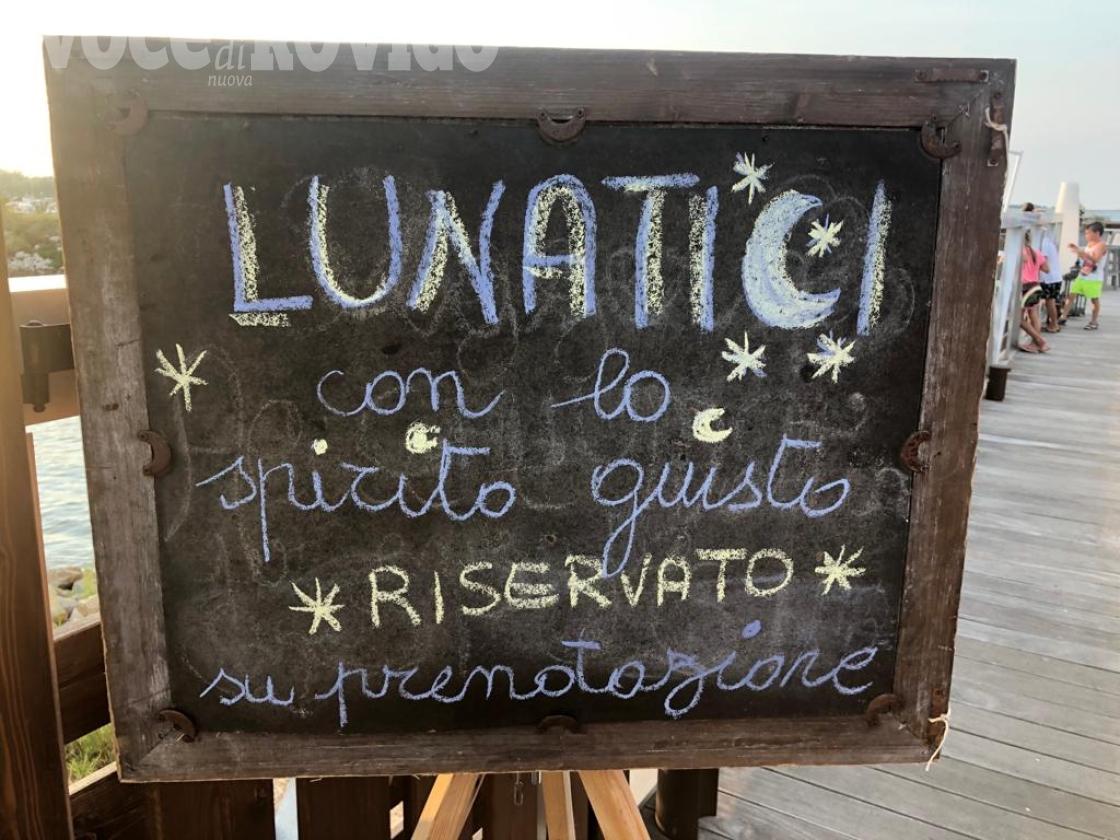 VOCE di ROVIGO
nuova
LUNATICI
con lo
spirito giusto
RISERVATO
su prenotazione